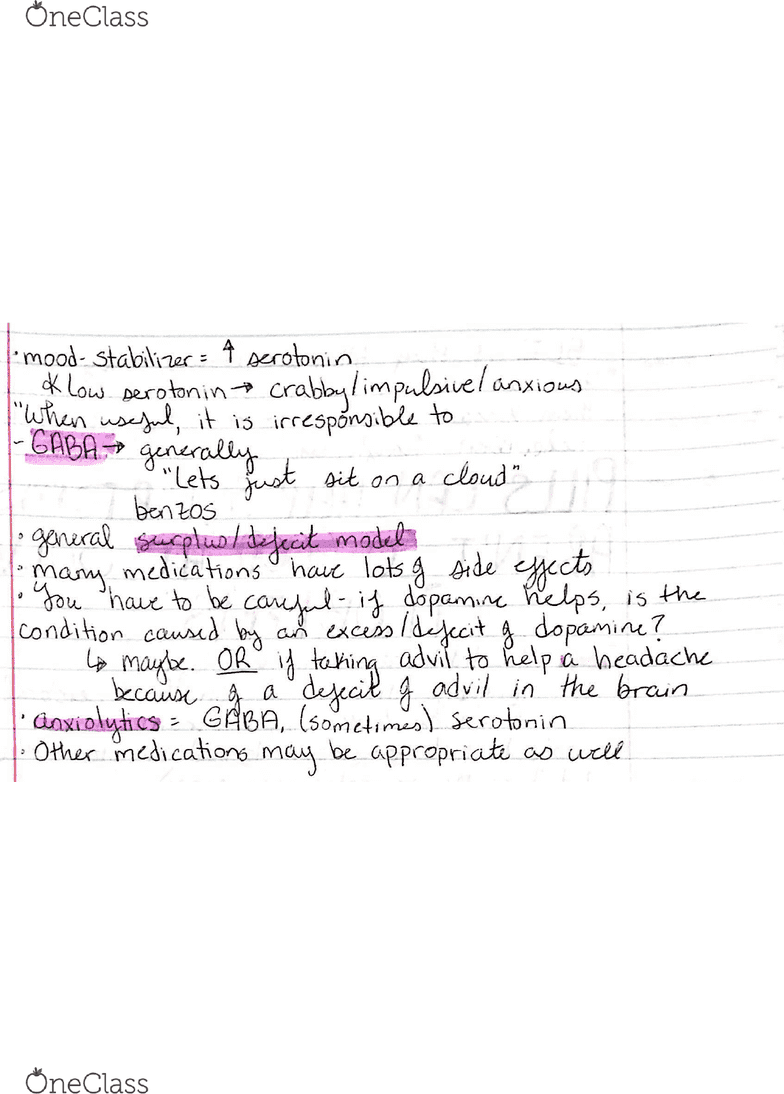 OneClass
· mood-stabilizer = ↑ serotonin
* Low serotonin → crabby/impulsive/anxious
"When useful, it is irresponsible to
- GABA → generally
"Lets just sit on a cloud"
benzos
· general surplus/deficit model
· many medications have lots of side effects
· You have to be careful - if dopamine helps, is the
condition caused by an excess/defecit of dopamine?
↳ maybe. OR if taking advil to help a headache
because of a defecit of advil in the brain
· anxiolytics = GABA, (sometimes) serotonin
· Other medications may be appropriate as well
OneClass